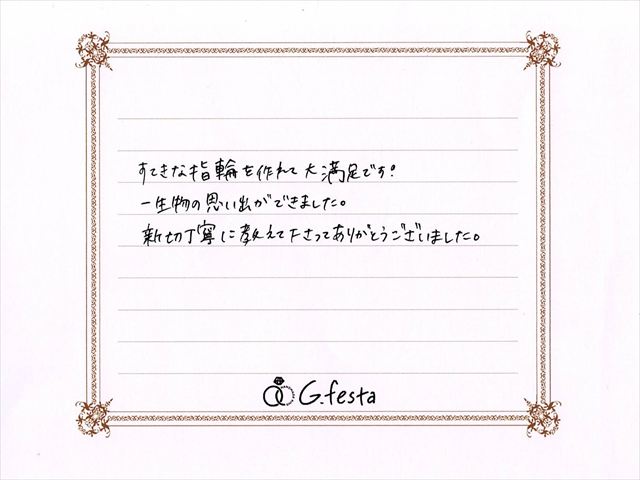 すてきな指輪を作れて大満足です!
一生物の思い出ができました。
新切丁寧に教えて下さってありがとうございました。
G.festa